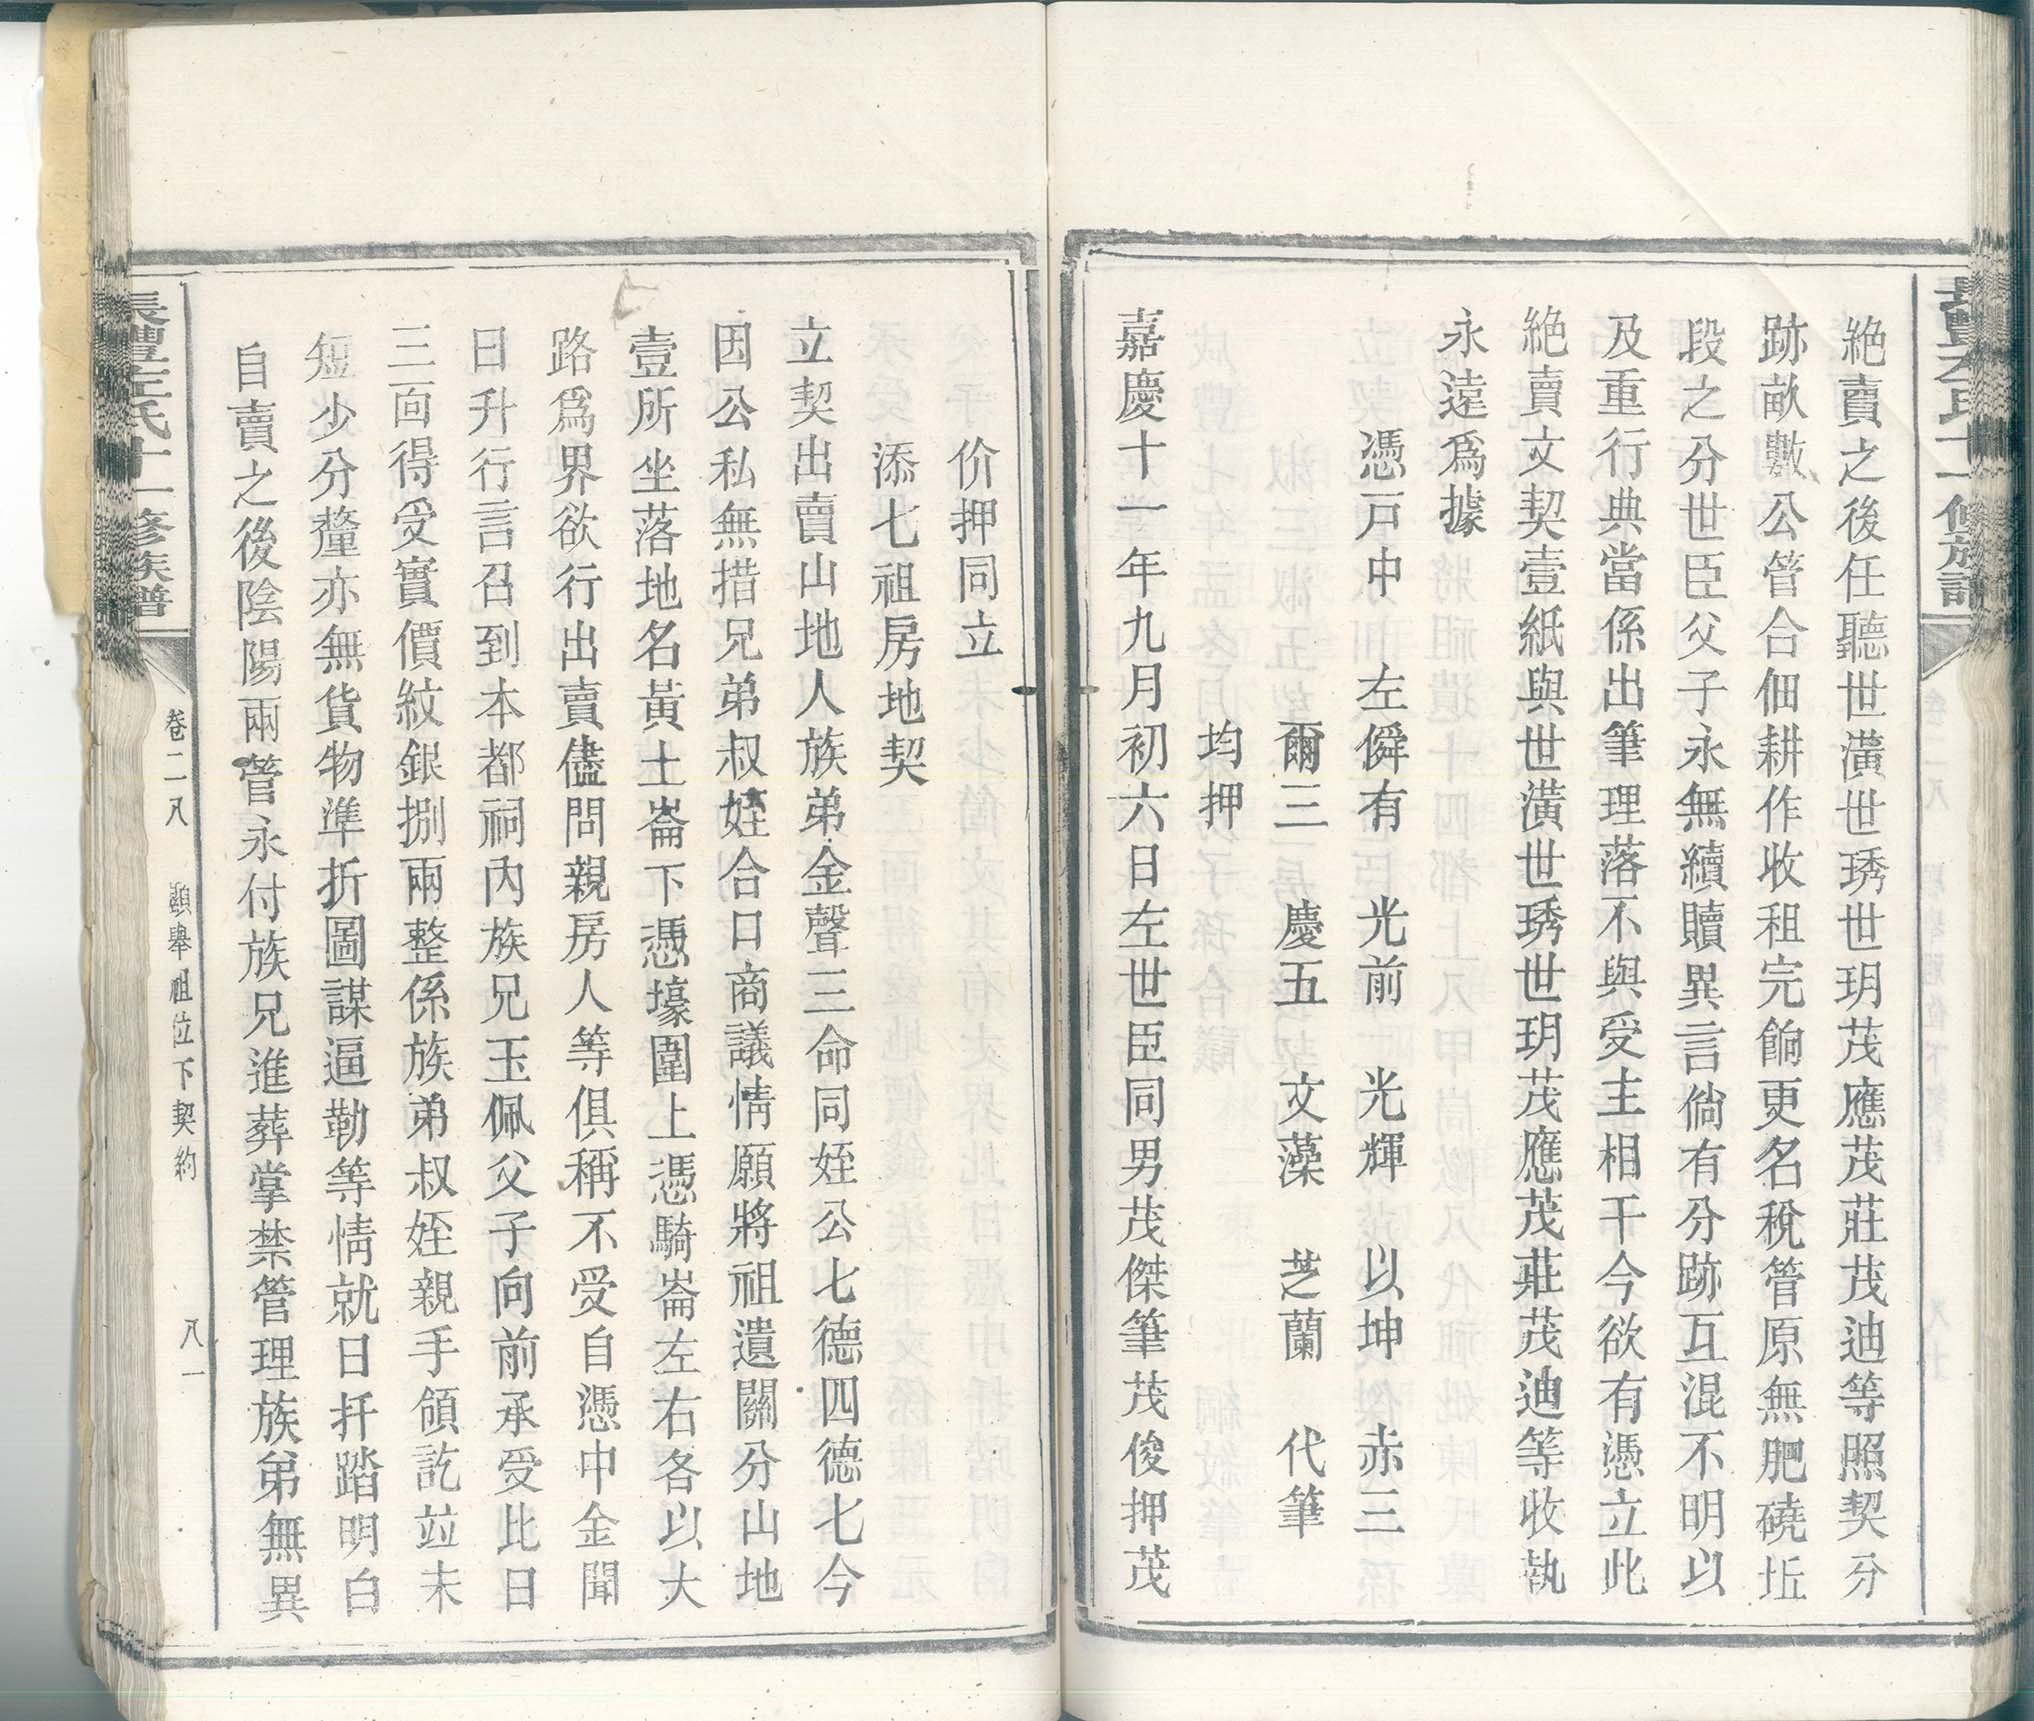 絶賣之後任聽世潢世琇世玥茂應茂莊茂迪等照契分
跡畝數公管合佃耕作收租完餉更名稅管原無肥磽坵
段之分世臣父子永無續贖異言倘有分跡互混不明以
及重行典當係出筆理落不與受主相干今欲有憑立此
絶賣文契壹紙與世潢世琇世玥茂應茂莊茂迪等收執
永遠爲據
憑戸中　左僢有　光前　光輝　以坤　赤三
爾三　慶五　文藻　芝蘭　代筆
均押
嘉慶十一年九月初六日左世臣同男茂傑筆茂俊押茂
价押同立
添七祖房地契
立契出賣山地人族弟金聲三命同姪公七德四德七今
因公私無措兄弟叔姪合口商議情願將祖遺關分山地
壹所坐落地名黃土崙下憑壕圍上憑騎崙左右各以大
路爲界欲行出賣儘問親房人等俱稱不受自憑中金聞
日升行言召到本都祠內族兄玉佩父子向前承受比日
三面得受實價紋銀捌兩整係族弟叔姪親手領訖並未
短少分釐亦無貨物準折圖謀逼勒等情就日扦踏明白
自賣之後陰陽兩管永付族兄進葬掌禁管理族弟無異
長豐左氏十一修族譜
卷二八　顯舉祖位下契約　八一